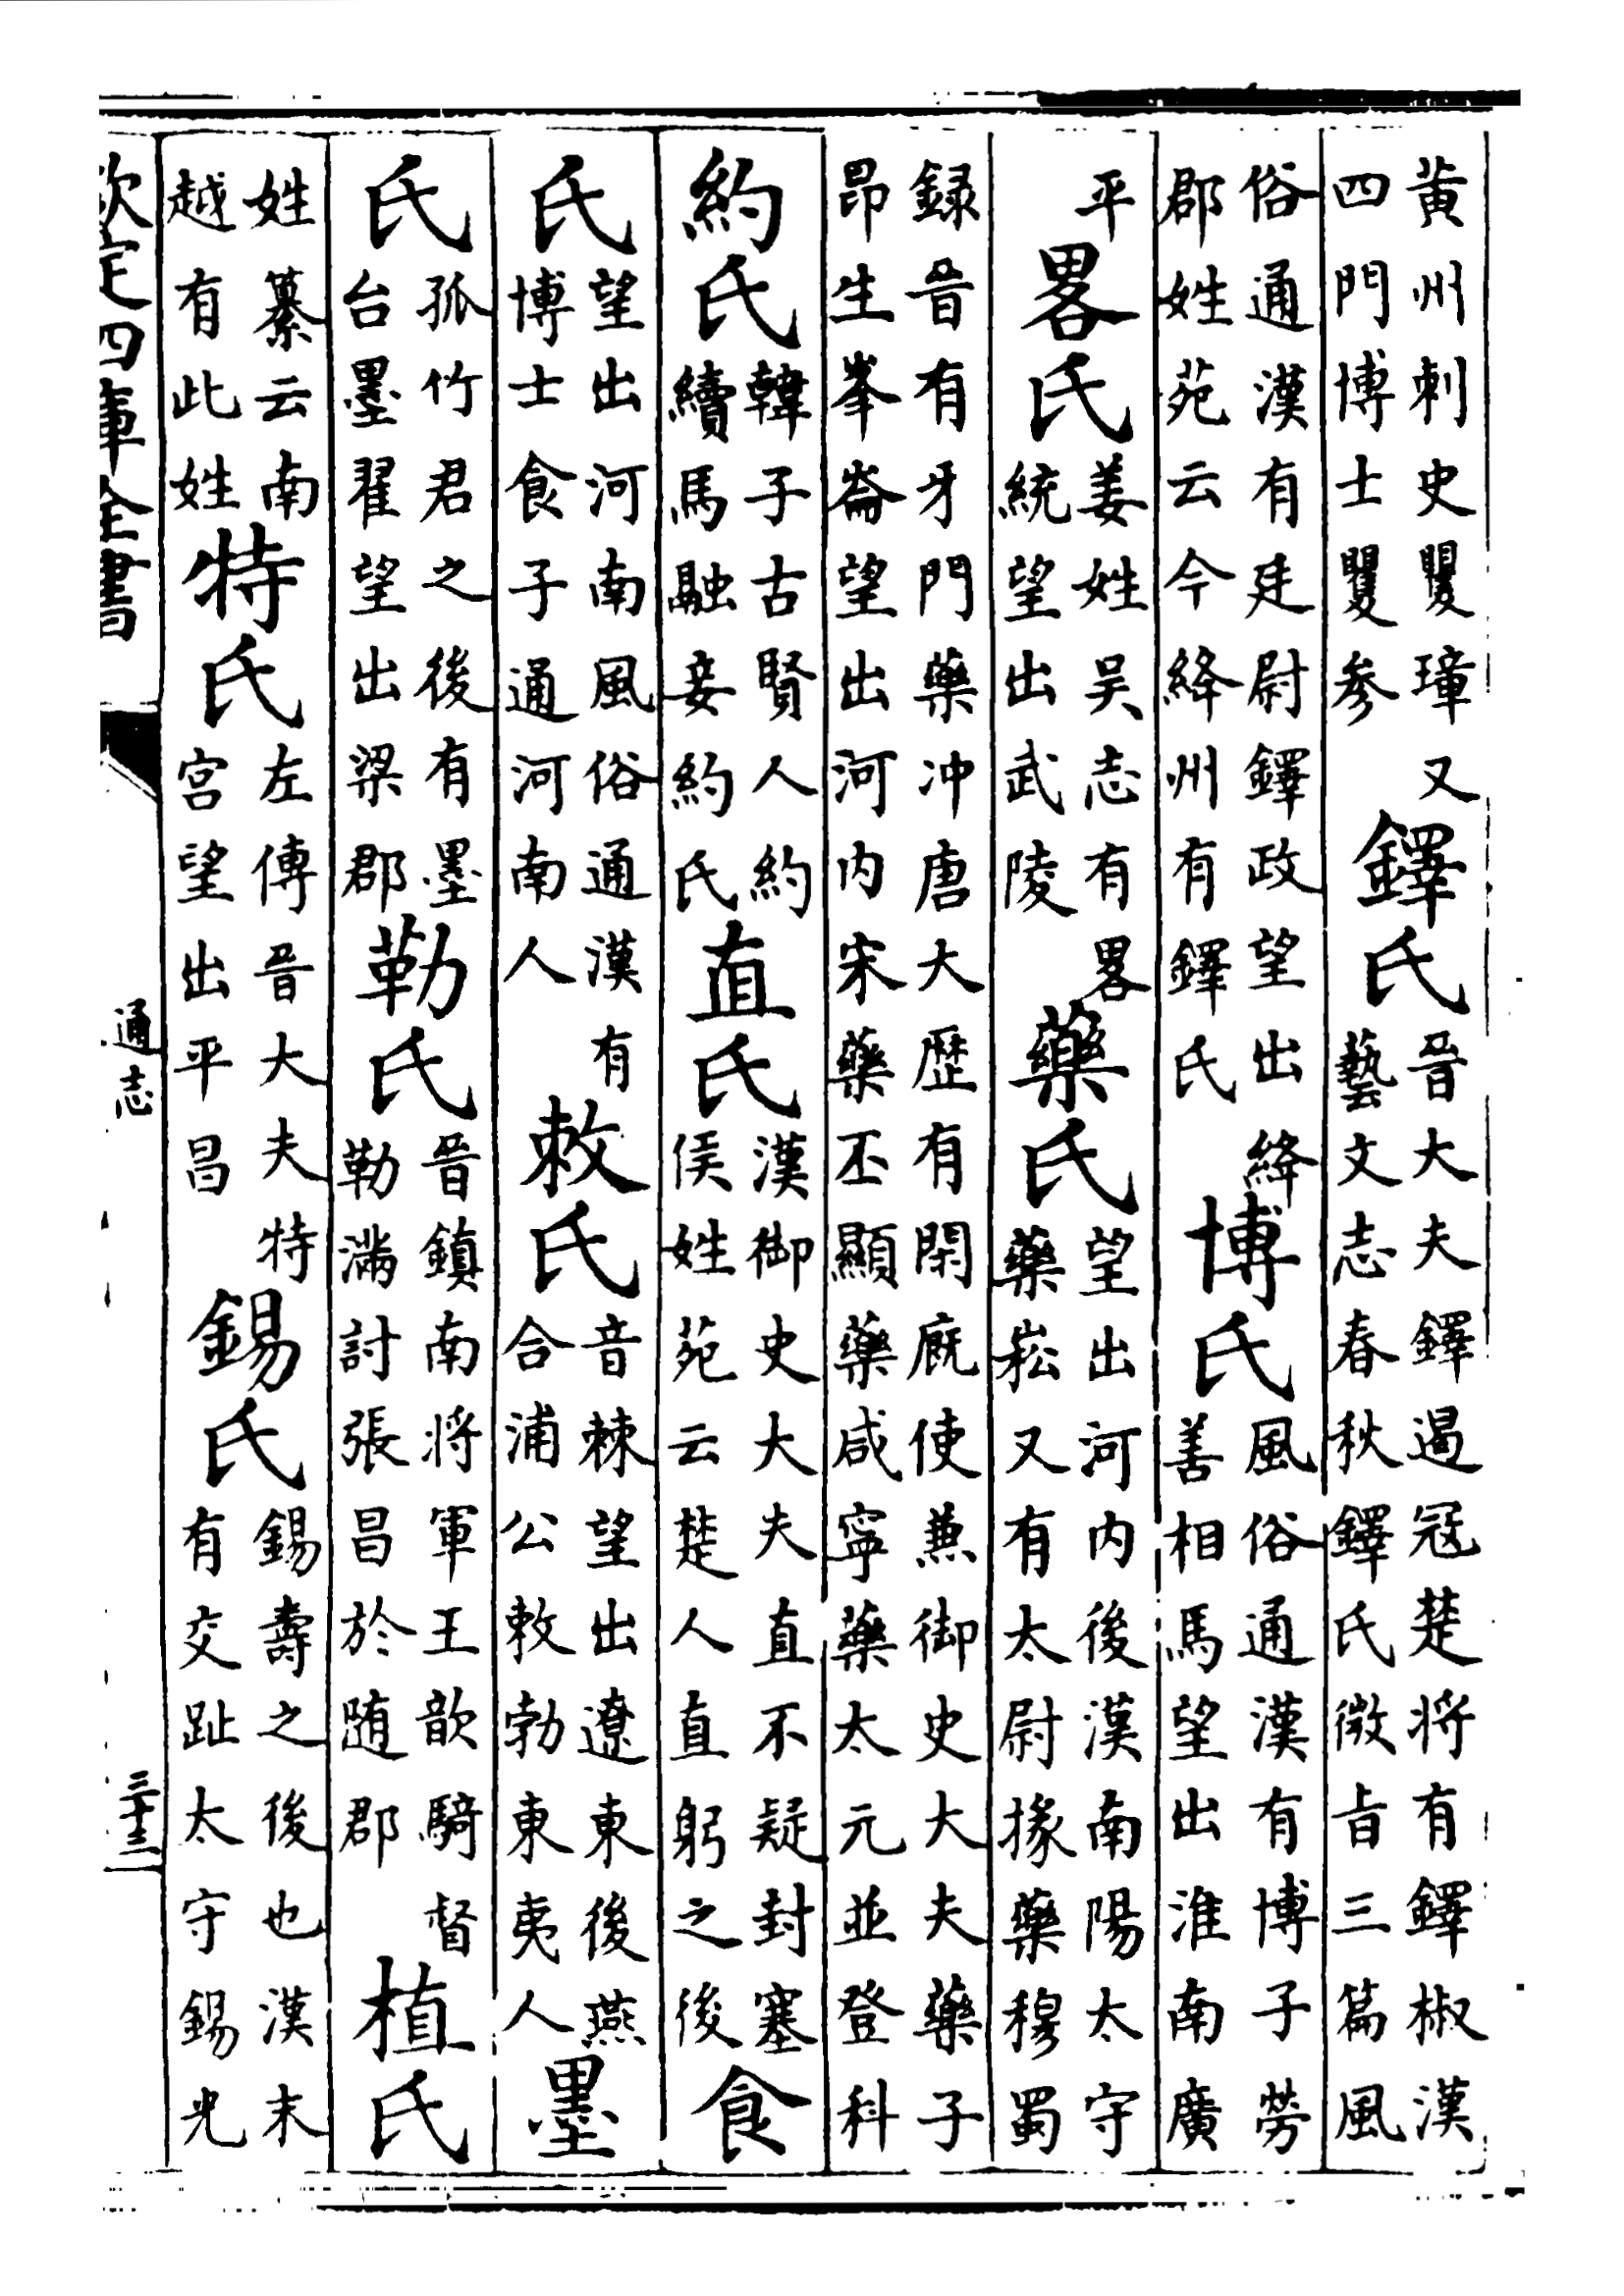 黄州刺史矍璋又
四門博士矍參
鐸氏
晉大夫鐸遏冦楚将有鐸椒漢
藝文志春秋鐸氏微㫖三篇風
俗通漢有廷尉鐸政望出絳
郡姓苑云今絳州有鐸氏
博氏
風俗通漢有博子勞
善相馬望出淮南廣
平
畧氏
姜姓吴志有畧
統望出武陵
藥氏
望出河内後漢南陽太守
藥崧又有太尉掾藥穆蜀
録晉有牙門藥冲唐大歴有閑廐使兼御史大夫藥子
昻生峯崙望出河内宋藥丕顯藥咸寧藥太元並登科
約氏
韓子古賢人約
續馬融妾約氏
直氏
漢御史大夫直不疑封塞
侯姓苑云楚人直躬之後
食
氏
望出河南風俗通漢有
博士食子通河南人
敕氏
音棘望出遼東後燕
合浦公敕勃東夷人
墨
氏
孤竹君之後有墨
台墨翟望出梁郡
勒氏
晉鎮南将軍王歆騎督
勒滿討張昌於随郡
植氏
姓纂云南
越有此姓
特氏
左傳晉大夫特
宫望出平昌
錫氏
錫壽之後也漢末
有交趾太守錫光
欽定四庫全書
通志
三十三